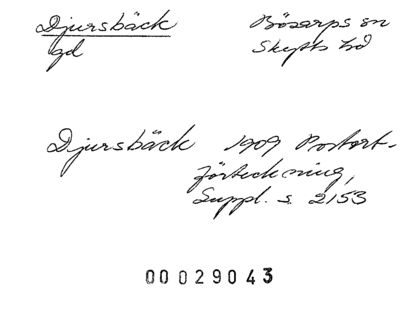 Djursbäck Bösarps sn
gd Skytts hd
Djursbäck 1909 Postort-
förteckning,
Suppl. s. 2153
00029043